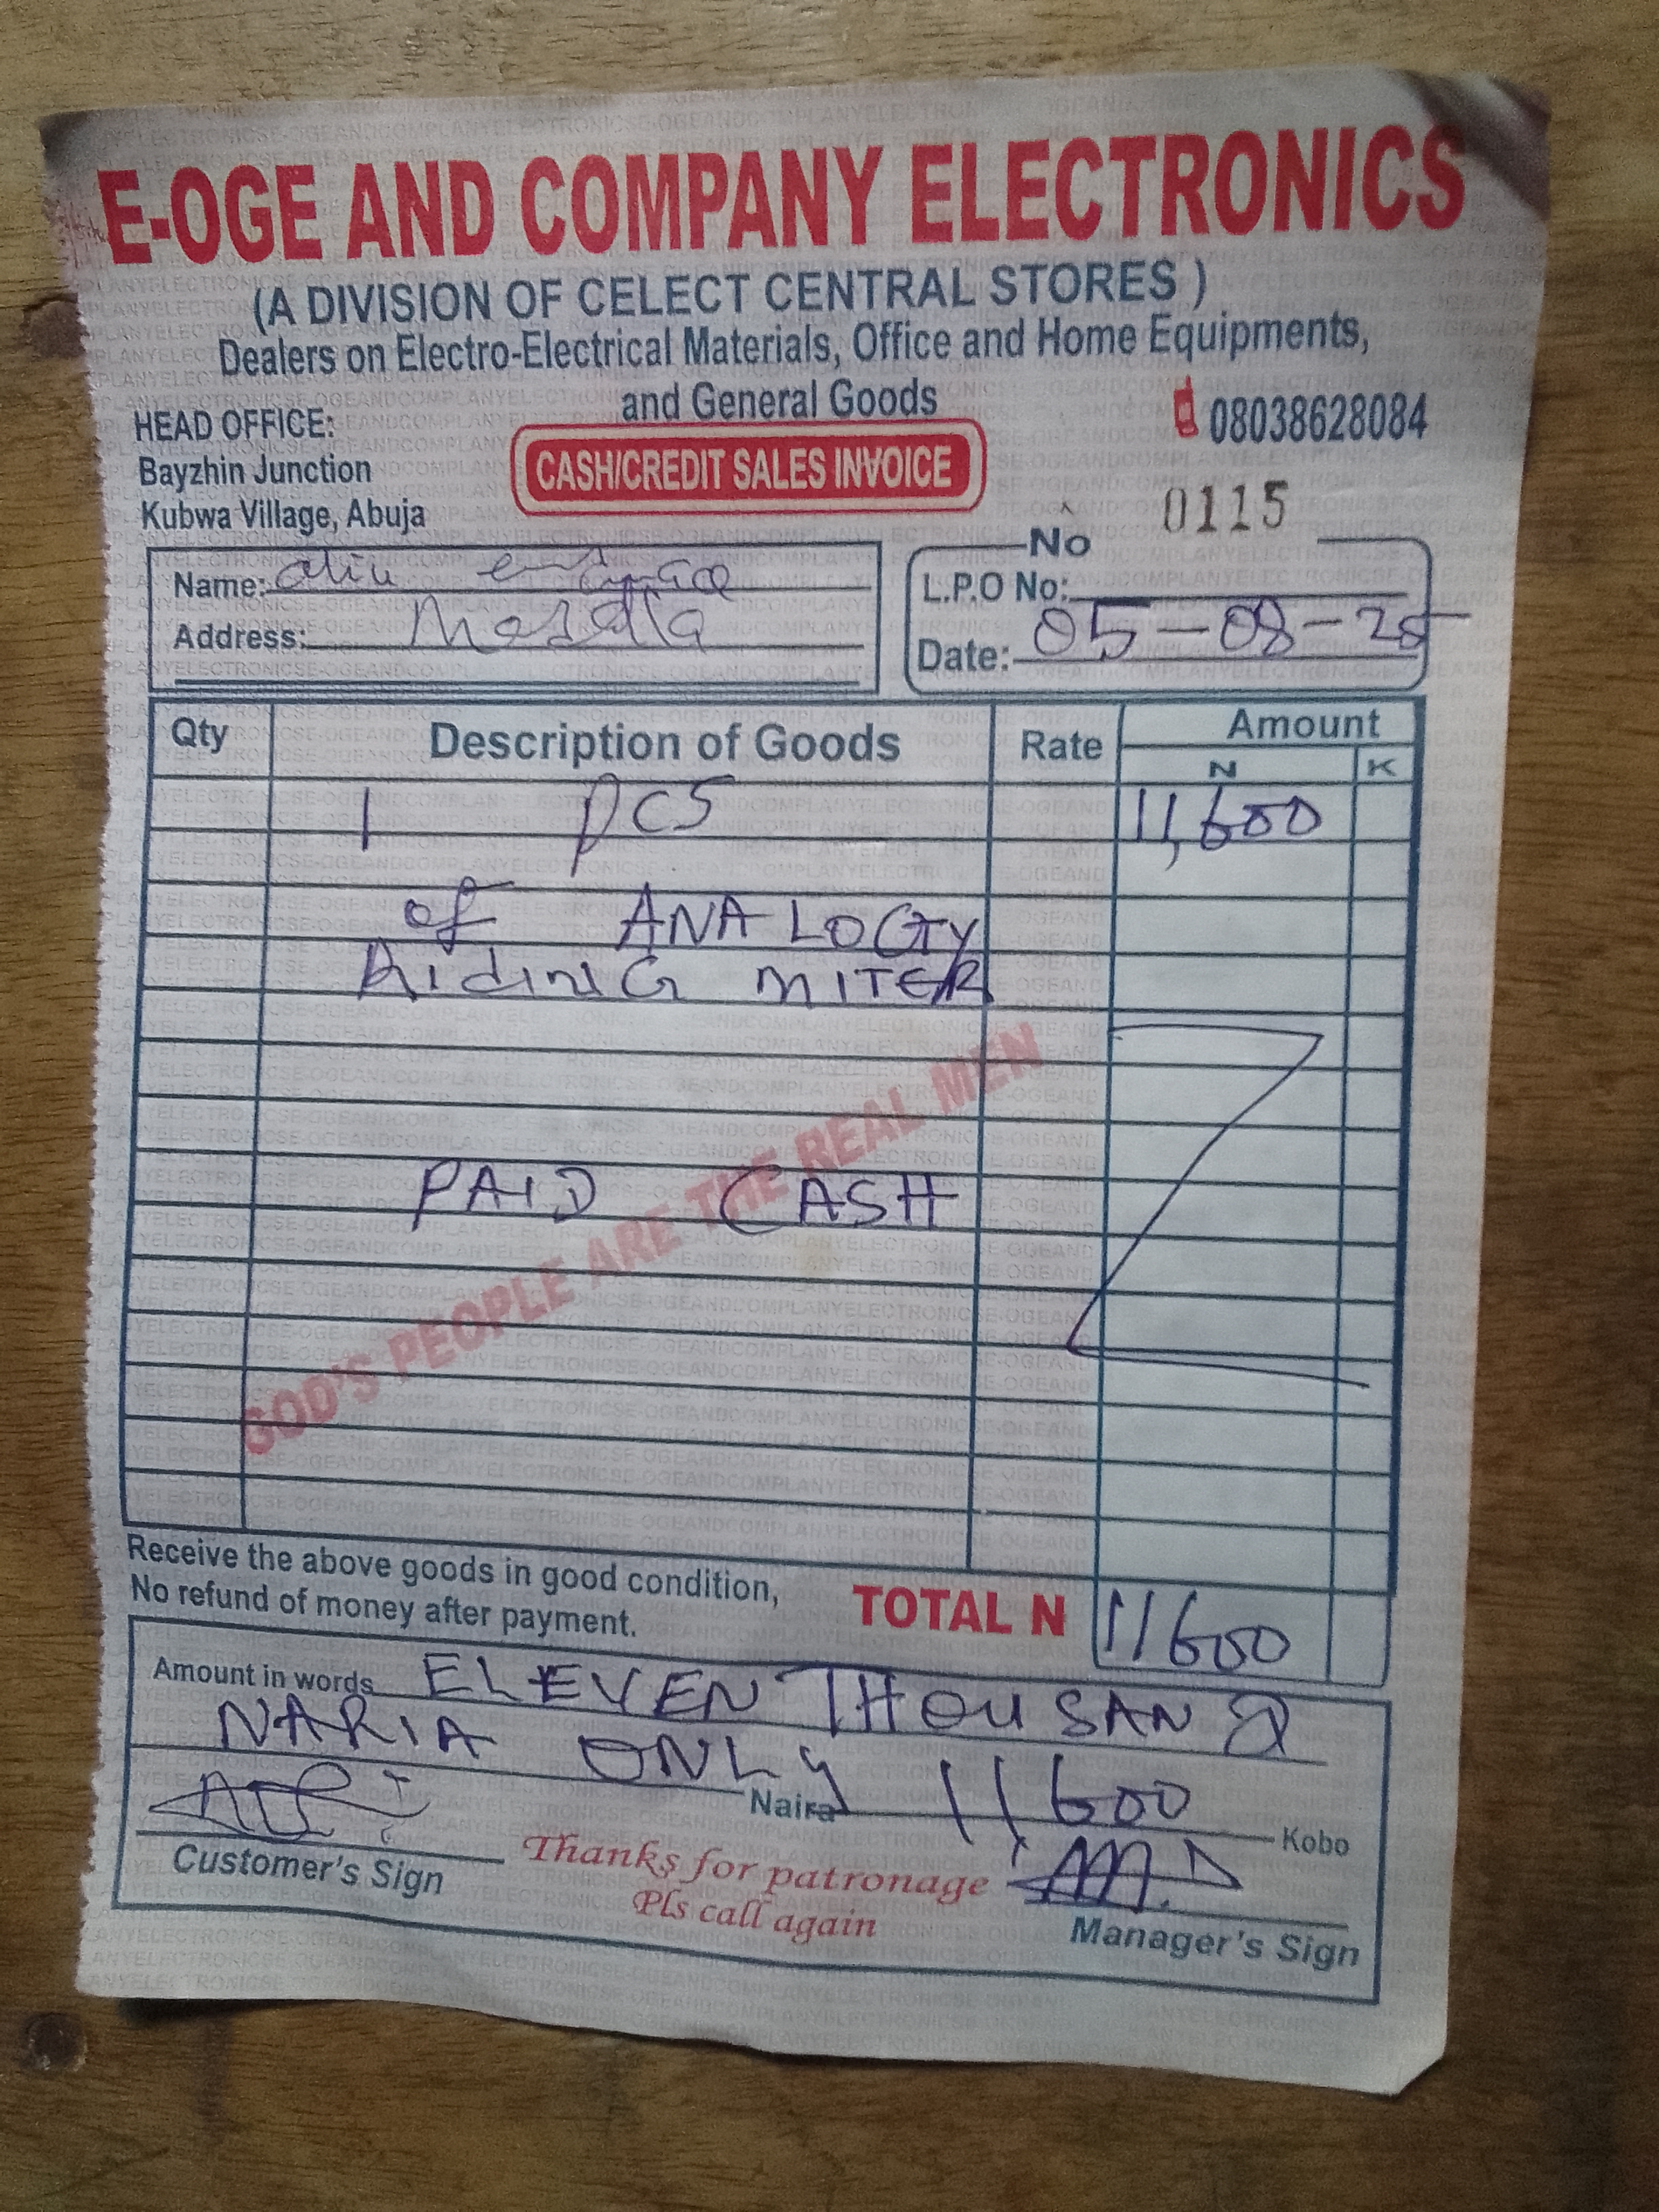 E-OGE AND COMPANY ELECTRONICS
(A DIVISION OF CELECT CENTRAL STORES )
Dealers on Electro-Electrical Materials, Office and Home Equipments,
and General Goods
08038628084
HEAD OFFICE:
Bayzhin Junction
Kubwa Village, Abuja
CASH/CREDIT SALES INVOICE
No 0115
Name:
Address:
L.P.O No:
Date: 05-08-25
Qty Description of Goods Rate Amount
N K
1 PCS 11,600
of ANALOGY
MITER
GOD'S PEOPLE ARE THE REAL MEN
PAID CASH
Receive the above goods in good condition,
No refund of money after payment.
TOTAL N 11600
Amount in words ELEVEN THOUSAND
NARIA ONLY Naira 11,600 Kobo
Customer's Sign
Thanks for patronage
Pls call again
Manager's Sign